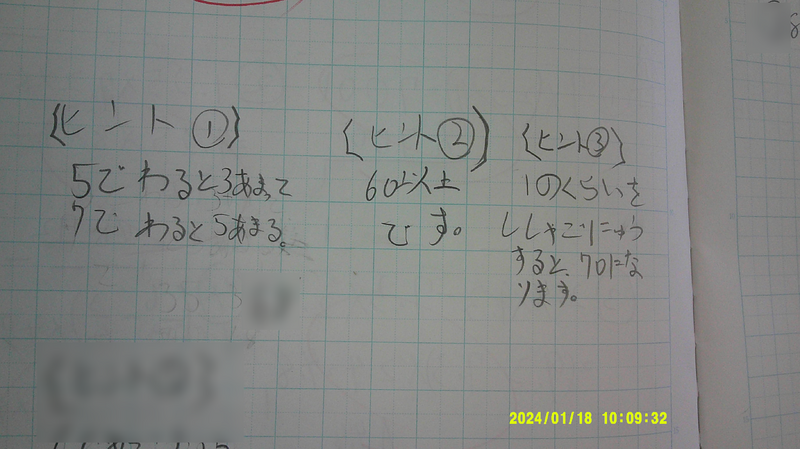 {ヒント①}
5でわると3あまって
7でわると5あまる。
{ヒント②}
60以上
です。
{ヒント③}
1のくらいを
ししゃごにゅう
すると、70にな
ります。
2024/01/18 10:09:32